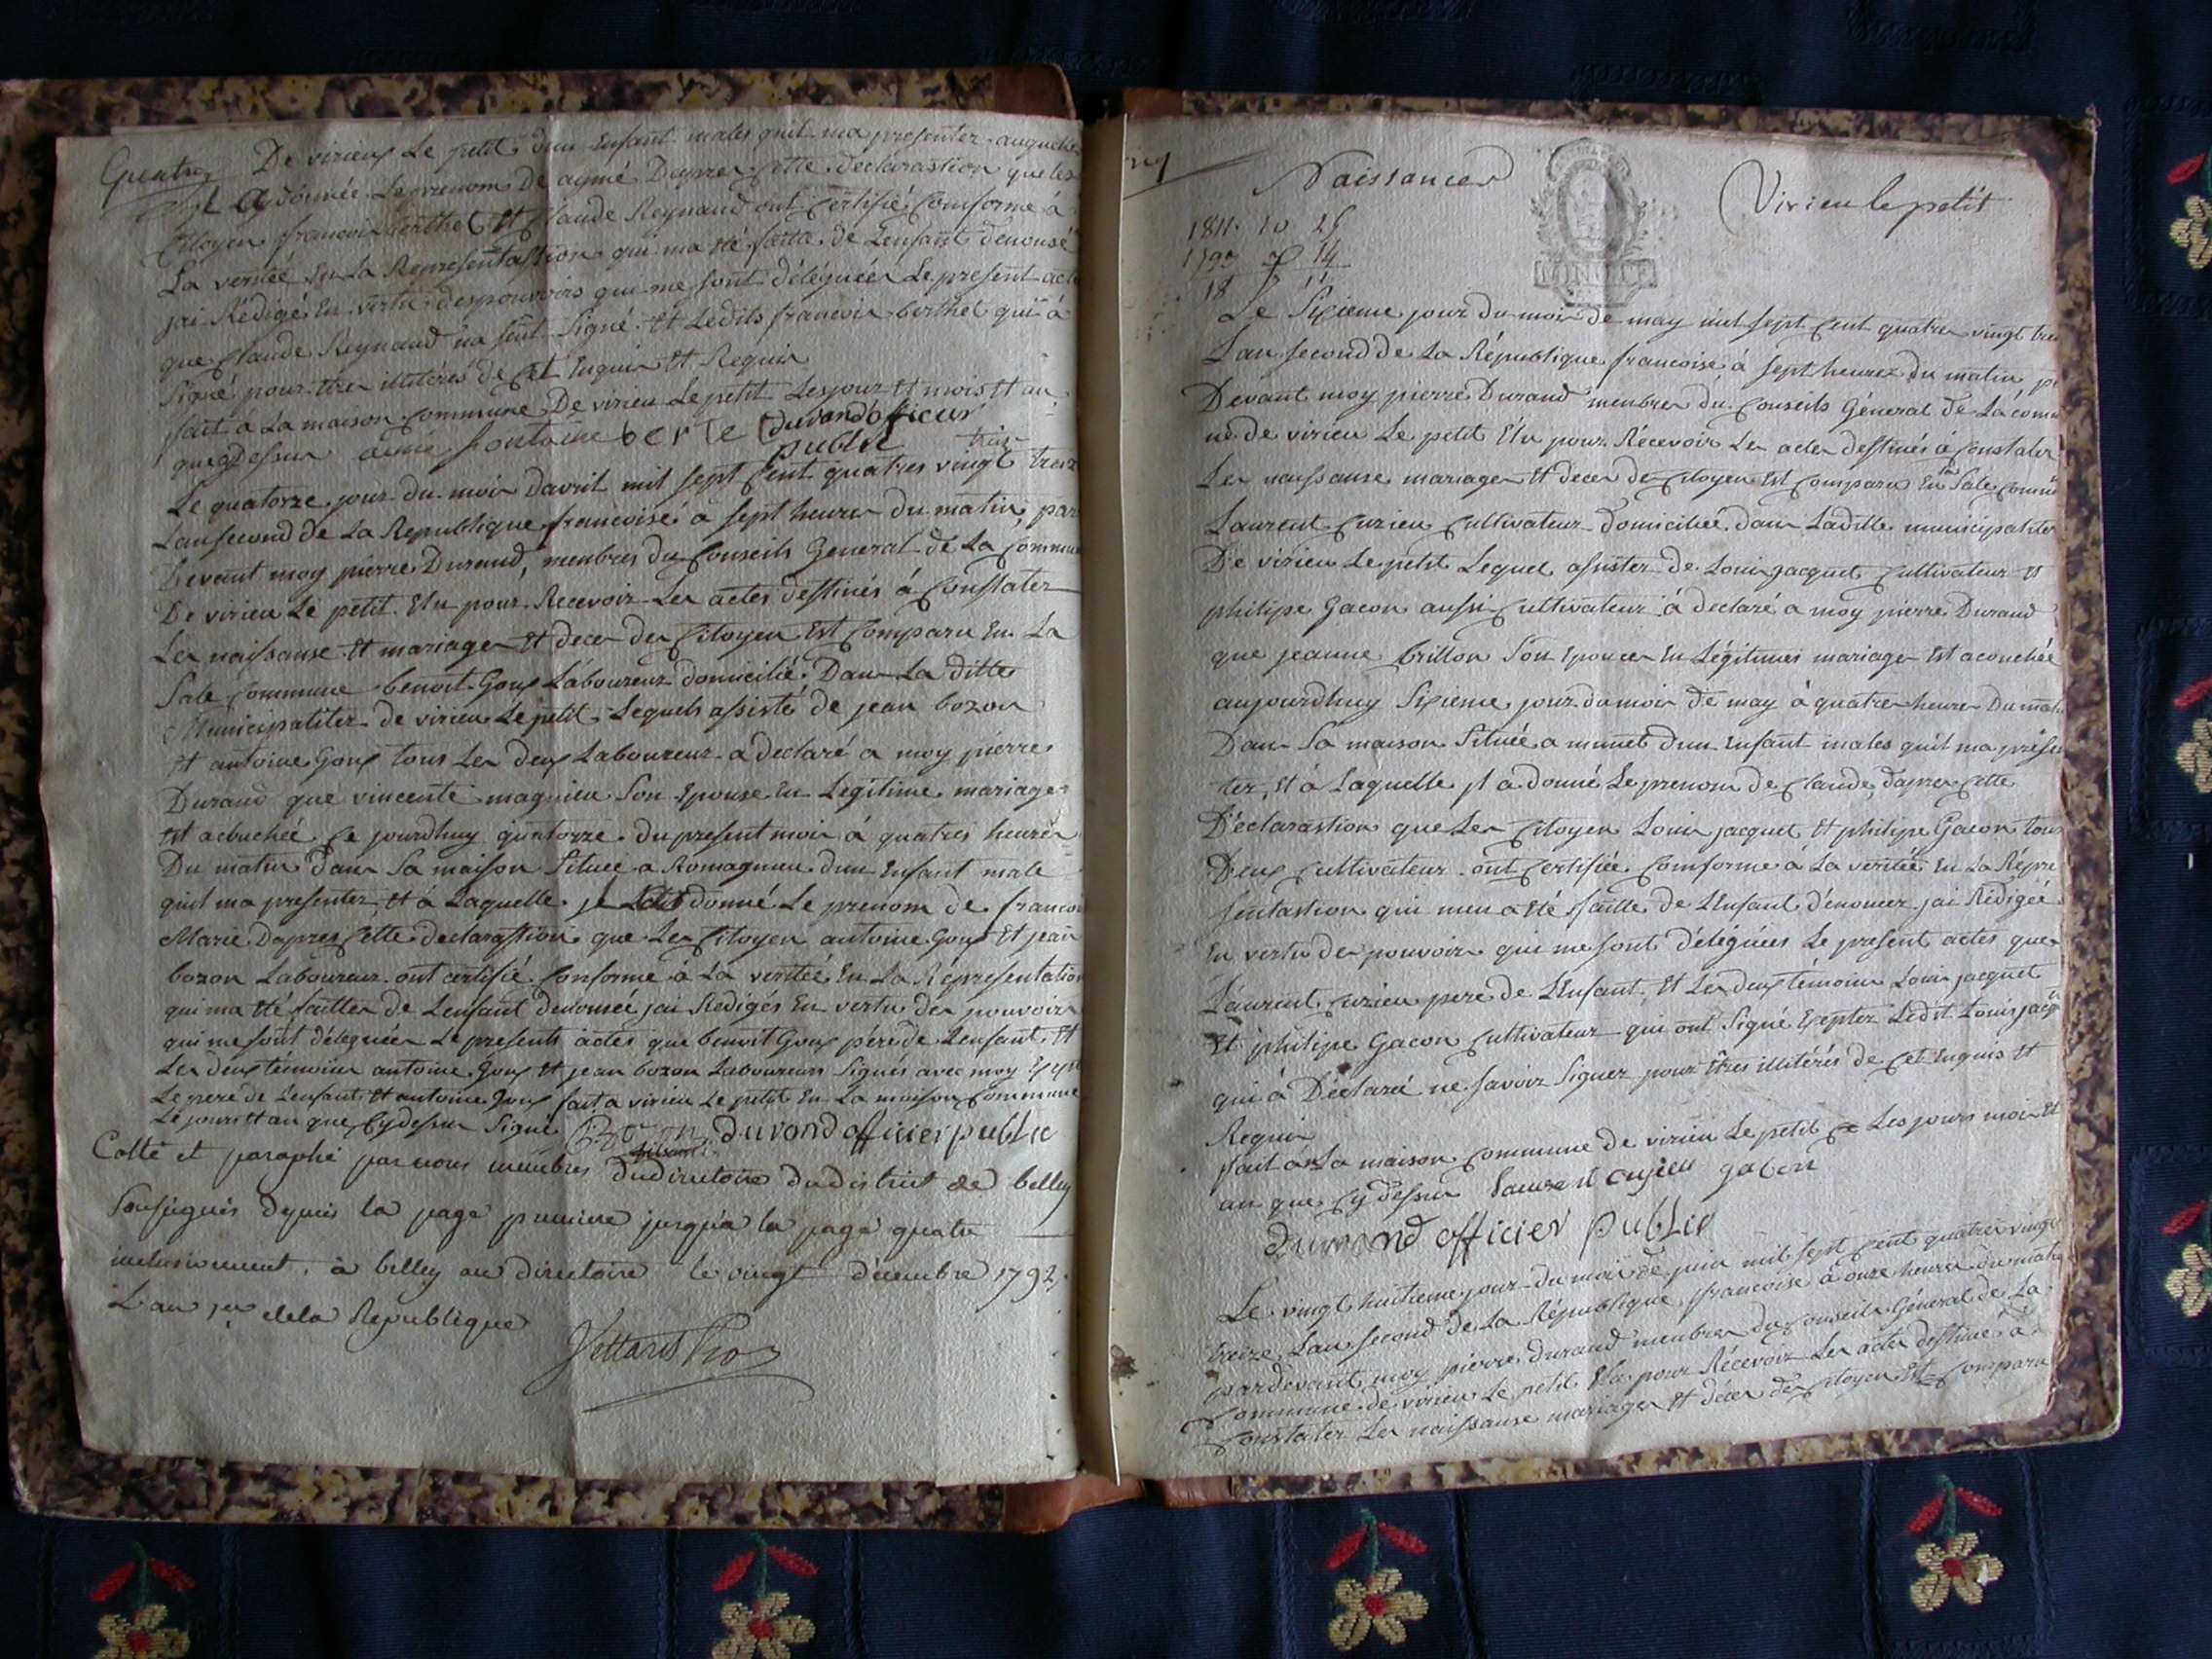 Quatre
De virieux Le petit dun Enfant males quil ma presenter auquelle
jl a donnée Le prenom De aymé Dapres Cette declarastion que les
Citoyen francois berthet Et Claude Reynaud ont Certifié Comforme à
La veritéé En La Representastion qui ma été faitte de Lenfant denonsé
jai Rédigé En vertu des pouvoirs qui me sont déléguéer Le present acte
que Claude Reynaud na sent Signé Et Ledits francois berthet qui à
Signé pour être illitérés de Cet Enquis Et Requis
fait à La maison Commune De virieu Le petit Les jour Et mois Et an
que Cy Dessus aimé fontaine berte durand officier
public
Le quatorze jour du mois davril mil sept Cent quatres vingt treize
Lan second de La Republique francoise à sept heures du matin par
Devant moy pierre Durand, menbres du Conseils General de La Commune
De virieu Le petit Elu pour Recevoir Les actes destinés à Constater
Les naissanse Et mariages Et deces des Citoyen Est Comparu En La
Sale Commune benoit Goux Laboureur domicilié Dans La ditte
Municipalitéz de virieu Le petit Lequels assisté de jean bozon
Et antoine Goux tous Les deux Laboureur a declaré a moy pierre
Durand que vincente magnieu Son Epouse En Légitime mariages
Est acbuchéé Ce jourdhuy quatorze du present mois à quatres heures
Du matin dans Sa maison Situee a Romagnieu dun Enfant male
quil ma presenter Et à Laquelle jl donné Le prenom de francois
Marie Dapres Cette declarastion que Les Citoyen antoine Goux Et jean
bozon Laboureur ont certifié Conforme à La veritéé En La Représentation
qui ma été faitter de Lenfant denonsée jai Rediges En vertu des pouvoirs
qui me sont déleguées Le presents actes que benoit Goux pére de Lenfant Et
Les deux témoins antoine Goux Et jean bozon Laboureurs Signés avec moy Exepté
Le pere de Lenfant Et antoine Goux fait a virieu Le petit En La maison Commune
Le jours Et an que Cy dessus Signe Bozon durand officier public
Cotté et paraphé par nous membres du directoire du district de belley
Soussignés depuis la page premiere jusqu'a la page quatre
inclusivement, à belley au directoire le vingt décembre 1792,
L'an 1er de la Republique
Naissances
Virieu le petit
1811. 10 25
1793 5 14
18 5 11
Le Sixieme jour du mois de may mil sept Cent quatres vingt treize
Lan second de La République francoise à sept heures du matin par
Devant moy pierre Durand menbres du Conseils Géneral de La commu
ne de virieu Le petit Elu pour Récevoir Les actes destinés à Constater
Les naissanse mariages Et deces des Citoyen Est Comparu En la Sale Commune
Laurent Cuzieu Cultivateur domiciliée dans Laditte municipalitéz
De virieu Le petit Lequel assister de Louis jacquet Cultivateur Et
philipe Gacon aussi Cultivateur à declaré a moy pierre Durand
que jeanne brillon Son Epouces En Légitimes mariages Est acouchée
aujourdhuy Sixieme jour du mois de may à quatres heures Du matin
Dans Sa maison Située a munet dun Enfant males quil ma présen
ter, Et à Laquelle jl a donné Le prenom de Claude, dapres Cette
Déclarastion que Les Citoyen Louis jacquet Et philipe Gacon tous
Deux Cultivateur ont Certifiée Comforme à La veritéé En La Répre
sentastion qui men a été faitte de LEnfant dénoncer jai Rédigéé
En vertu des pouvoirs qui me sont déléguées Le present actes que
Laurent Cuzieu pere de LEnfant, Et Les deux témoins Louis jacquet
Et philipe Gacon Cultivateur qui ont Signé Exepter Ledit Louis jacquet
qui à Déclaréé ne savoir Signer pour Êtres illitérés de Cet Enquis Et
Requis
fait à La maison Commune de virieu Le petit Les jours mois Et
an que Cy dessus Laurent cujieu gacon
durand officier public
Le vingt huitieme jour du mois de juin mil sept Cent quatres vingt
treize Lan second de La République francoise à onze heures du matin
pardevant moy pierre durand menbres du Conseils Géneral de La
Commune de virieu Le petit Elu pour Récevoir Les actes destiné à
Constater Les naissanse mariages Et déces des Citoyen Est Comparu